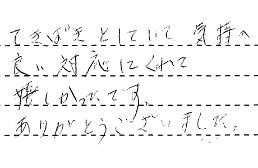 てきぱきとしていて 気持ヘ
良い対応にくれて
嬉しかったです。
ありがとうございました。